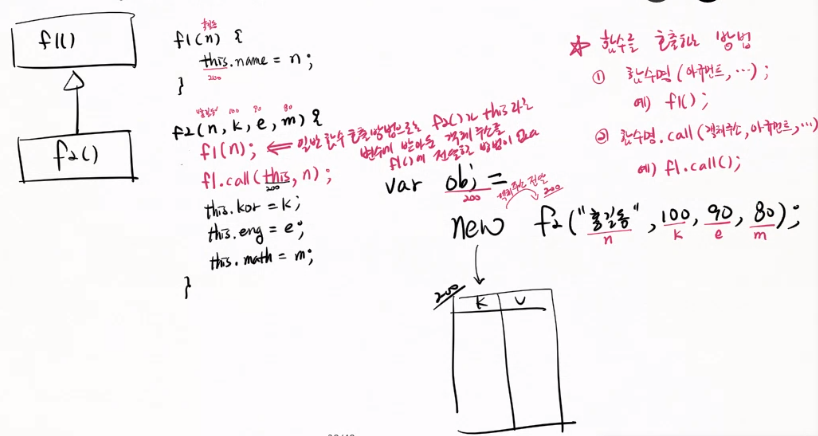 f1()
f2()
홍길동
f1(n) {
this.name = n;
200
}
홍길동 100 90 80
f2(n, k, e, m) {
f1(n); ⇐ 일반 함수 호출 방법으로는 f2()가 this라는
변수에 받아온 객체 주소를
f1()에 전달할 방법이 없다
f1.call(this, n);
200
this.kor = k;
this.eng = e;
this.math = m;
}
var obj =
200
객체주소 전달
200
new f2("홍길동", 100, 90, 80);
n k e m
200
K V
☆ 함수를 호출하는 방법
① 함수명(아규먼트, …);
예) f1();
② 함수명.call(객체주소, 아규먼트, …)
예) f1.call();